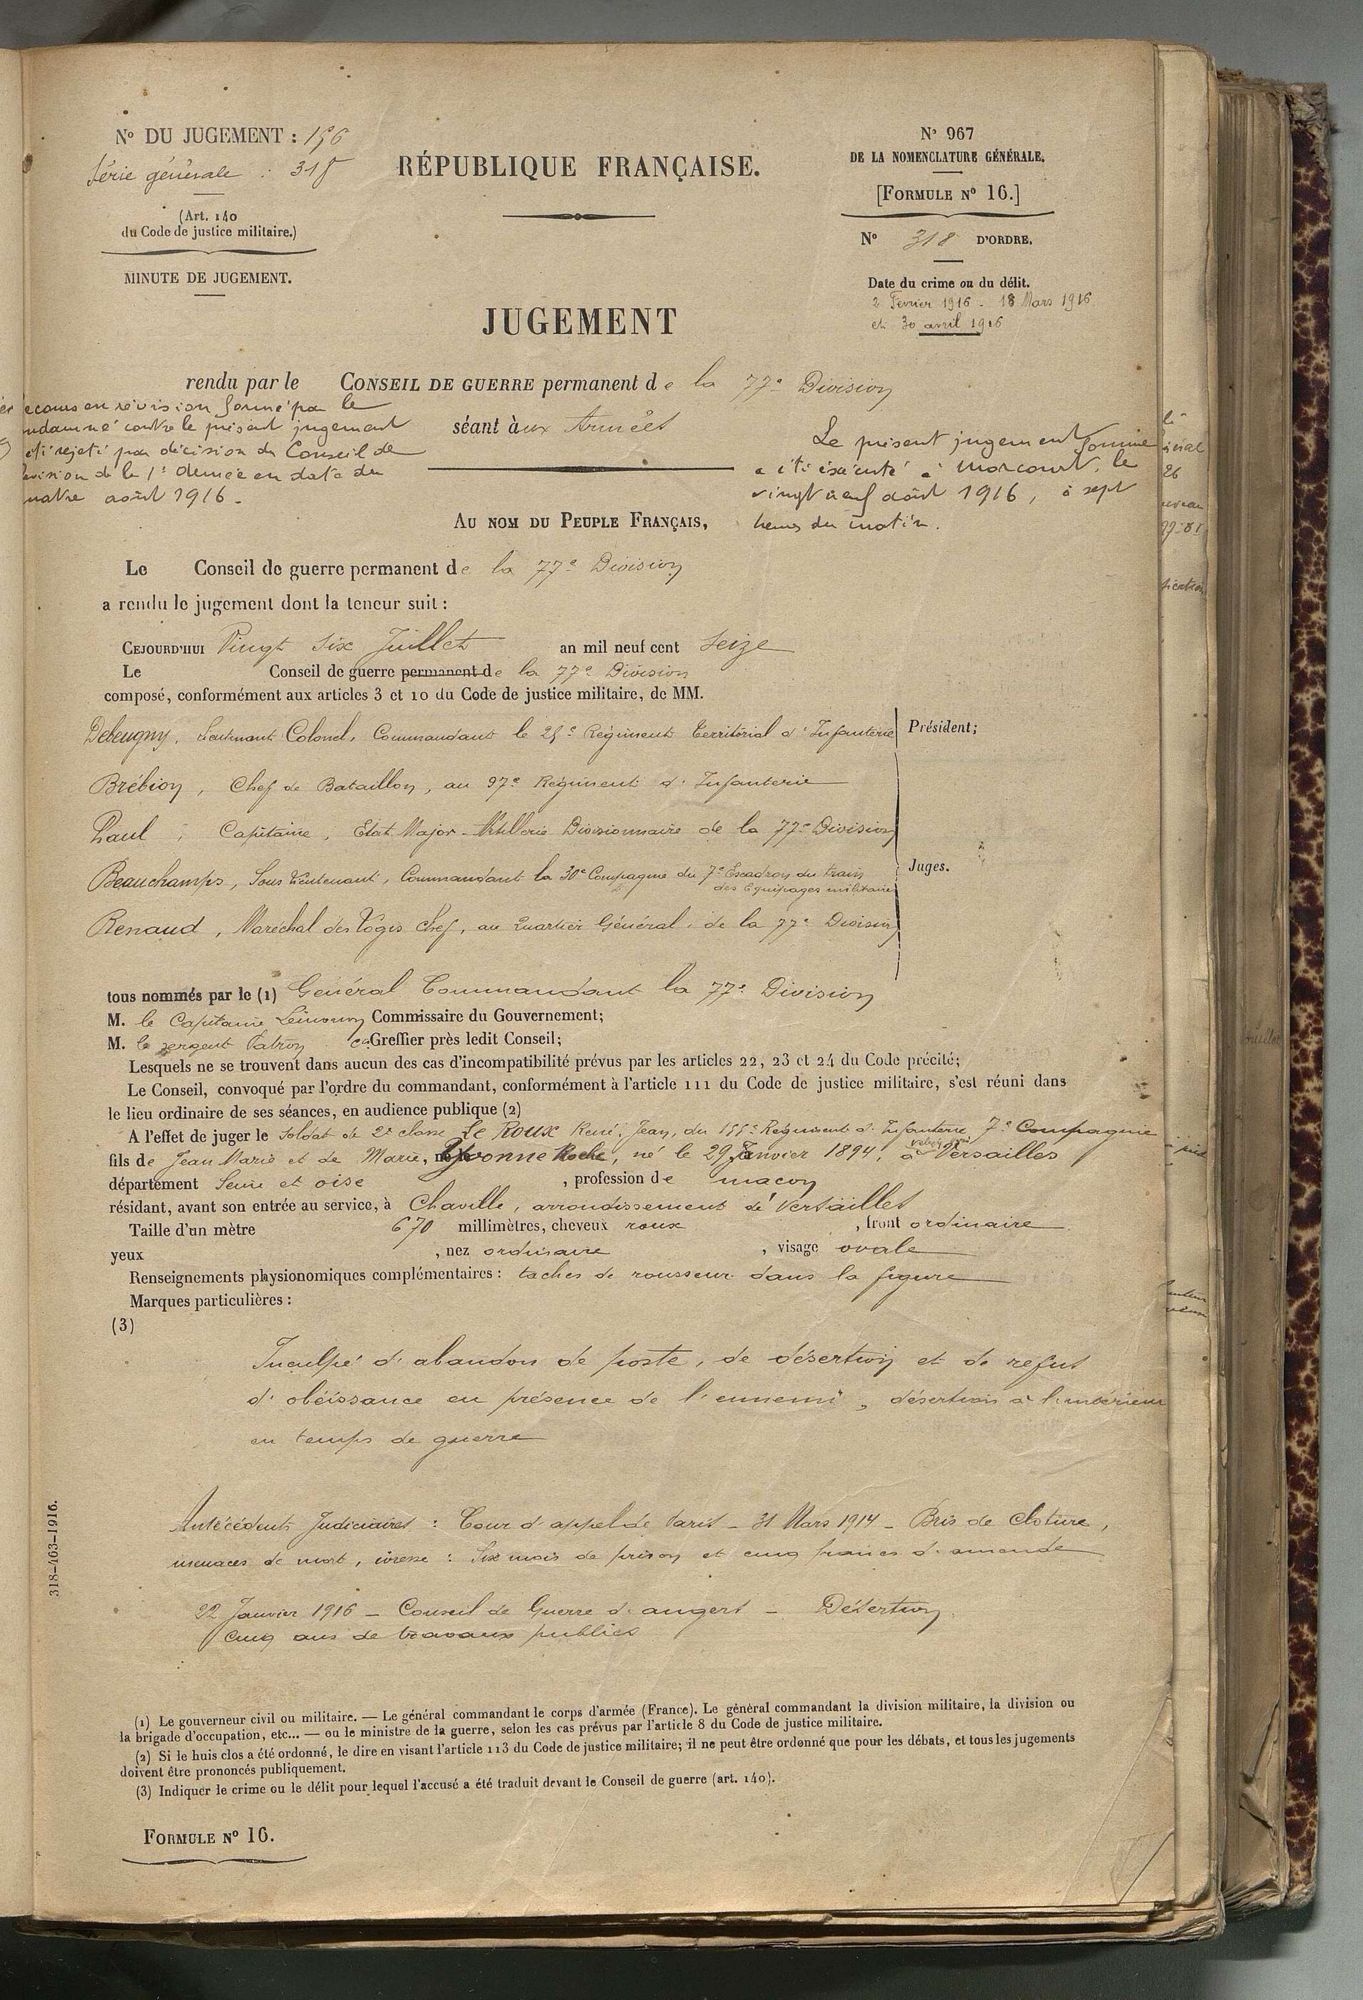 N° DU JUGEMENT : 156
Série générale : 318
(Art. 140
du Code de justice militaire.)
MINUTE DE JUGEMENT.
RÉPUBLIQUE FRANÇAISE.
N° 967
DE LA NOMENCLATURE GÉNÉRALE.
[FORMULE N° 16.]
N° 318 D'ORDRE.
Date du crime ou du délit.
2 Février 1916 - 18 Mars 1916
et 30 avril 1916
JUGEMENT
rendu par le CONSEIL DE GUERRE permanent de la 77e Division
séant aux Armées
ecours en révision formé par le
ndamné contre le présent jugement
été rejeté par décision du Conseil de
vision de la 1e Armée en date du
uatre août 1916.
Le présent jugement
a été exécuté à Morcourt, le
vingt neuf août 1916, à sept
heures du matin.
AU NOM DU PEUPLE FRANÇAIS,
Le Conseil de guerre permanent de la 77e Division
a rendu le jugement dont la teneur suit :
CEJOURD'HUI Vingt Six Juillet an mil neuf cent Seize
Le Conseil de guerre permanent de la 77e Division
composé, conformément aux articles 3 et 10 du Code de justice militaire, de MM.
Debeugny, Lieutenant Colonel, Commandant le 25e Régiment Territorial d'Infanterie Président;
Brébion, Chef de Bataillon, au 97e Régiment d'Infanterie
Paul, Capitaine, Etat Major Artillerie Divisionnaire de la 77e Division
Beauchamps, Sous Lieutenant, Commandant la 30e Compagnie du 7e Escadron du train
des Equipages militaires
Juges.
Renaud, Maréchal des Logis Chef, au Quartier Général de la 77e Division
tous nommés par le (1) Général Commandant la 77e Division
M. le Capitaine Commissaire du Gouvernement;
M. le sergent Greffier près ledit Conseil;
Lesquels ne se trouvent dans aucun des cas d'incompatibilité prévus par les articles 22, 23 et 24 du Code précité;
Le Conseil, convoqué par l'ordre du commandant, conformément à l'article 111 du Code de justice militaire, s'est réuni dans
le lieu ordinaire de ses séances, en audience publique (2)
A l'effet de juger le soldat de 2e classe Le Roux René, Jean, du 155e Régiment d'Infanterie 7e Compagnie
fils de Jean Marie et de Marie, Yvonne Roche, né le 29 Janvier 1894, à Versailles
département Seine et oise, profession de maçon
résidant, avant son entrée au service, à Chaville, arrondissement de Versailles
Taille d'un mètre 670 millimètres, cheveux roux, front ordinaire
yeux , nez ordinaire, visage ovale
Renseignements physionomiques complémentaires : taches de rousseur dans la figure
Marques particulières :
(3)
Inculpé d'abandon de poste, de désertion et de refus
d'obéissance en présence de l'ennemi, désertion à l'intérieur
en temps de guerre
Antécédents Judiciaires : Cour d'appel de Paris - 31 Mars 1914 - Bris de clôture,
menaces de mort, ivresse : Six mois de prison et cinq francs d'amende
22 Janvier 1916 - Conseil de Guerre d'angers - Désertion,
Cinq ans de travaux publics
318-463-1916.
(1) Le gouverneur civil ou militaire. — Le général commandant le corps d'armée (France). Le général commandant la division militaire, la division ou
la brigade d'occupation, etc... — ou le ministre de la guerre, selon les cas prévus par l'article 8 du Code de justice militaire.
(2) Si le huis clos a été ordonné, le dire en visant l'article 113 du Code de justice militaire; il ne peut être ordonné que pour les débats, et tous les jugements
doivent être prononcés publiquement.
(3) Indiquer le crime ou le délit pour lequel l'accusé a été traduit devant le Conseil de guerre (art. 140).
FORMULE N° 16.